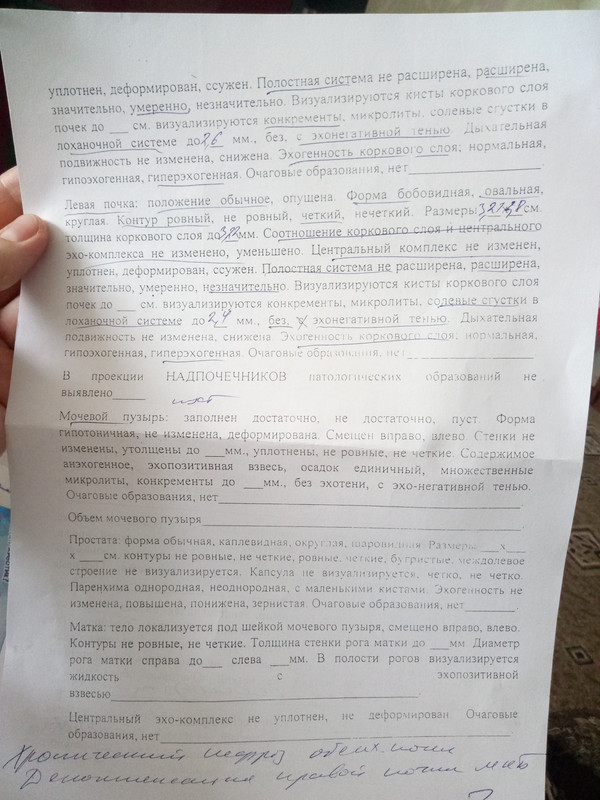 уплотнен, деформирован, ссужен. Полостная система не расширена, расширена,
значительно, умеренно, незначительно. Визуализируются кисты коркового слоя
почек до ___ см. визуализируются конкременты, микролиты, солевые сгустки в
лоханочной системе до 2,6 мм., без, с эхонегативной тенью. Дыхательная
подвижность не изменена, снижена. Эхогенность коркового слоя; нормальная,
гипоэхогенная, гиперэхогенная. Очаговые образования, нет
Левая почка: положение обычное, опущена. Форма бобовидная, овальная,
круглая. Контур ровный, не ровный, четкий, нечеткий. Размеры см.
толщина коркового слоя до мм. Соотношение коркового слоя и центрального
эхо-комплекса не изменено, уменьшено. Центральный комплекс не изменен,
уплотнен, деформирован, ссужен. Полостная система не расширена, расширена,
значительно, умеренно, незначительно. Визуализируются кисты коркового слоя
почек до ___ см. визуализируются конкременты, микролиты, солевые сгустки в
лоханочной системе до 2,4 мм., без, с эхонегативной тенью. Дыхательная
подвижность не изменена, снижена. Эхогенность коркового слоя; нормальная,
гипоэхогенная, гиперэхогенная. Очаговые образования, нет
В проекции НАДПОЧЕЧНИКОВ патологических образований не
выявлено_____ нет
Мочевой пузырь: заполнен достаточно, не достаточно, пуст. Форма
гипотоничная, не изменена, деформирована. Смещен вправо, влево. Стенки не
изменены, утолщены до ___мм., уплотнены, не ровные, не четкие. Содержимое
анэхогенное, эхопозитивная взвесь, осадок единичный, множественные
микролиты, конкременты до ___мм., без эхотени, с эхо-негативной тенью.
Очаговые образования, нет
Объем мочевого пузыря
Простата: форма обычная, каплевидная, округлая, шаровидная. Размеры ___х___
х ____см. контуры не ровные, не четкие, ровные, четкие, бугристые, междолевое
строение не визуализируется. Капсула не визуализируется, четко, не четко.
Паренхима однородная, неоднородная, с маленькими кистами. Эхогенность не
изменена, повышена, понижена, зернистая. Очаговые образования, нет
Матка: тело локализуется под шейкой мочевого пузыря, смещено вправо, влево.
Контуры не ровные, не четкие. Толщина стенки рога матки до ___мм Диаметр
рога матки справа до___ слева ___мм. В полости рогов визуализируется
жидкость с эхопозитивной
взвесью
Центральный эхо-комплекс не уплотнен, не деформирован Очаговые
образования, нет
Хронический нефроз обеих почек
правой почки